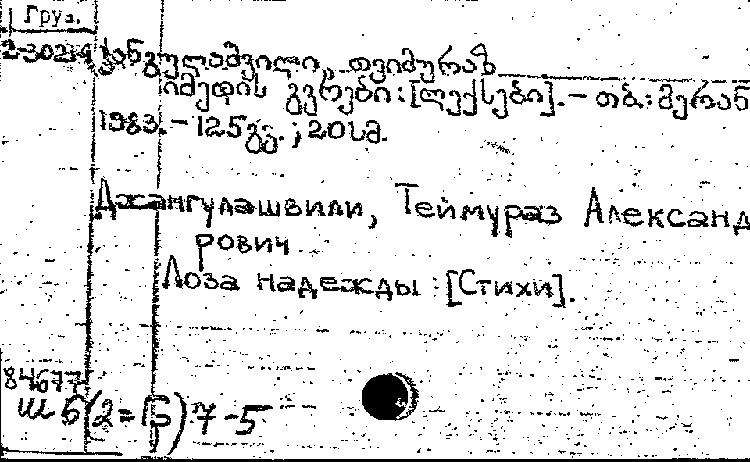 Груз.
2-30214 ჯანგულაშვილი, თეიმურაზ
იმედის გვრები : [ლექსები]. – თბ. : მერანი
1983. – 125 გვ. ; 20 სმ.
Джангулашвили, Теймураз Александ
рович
Лоза надежды : [Стихи].
84677
Ш 6(2=Гр)7-5